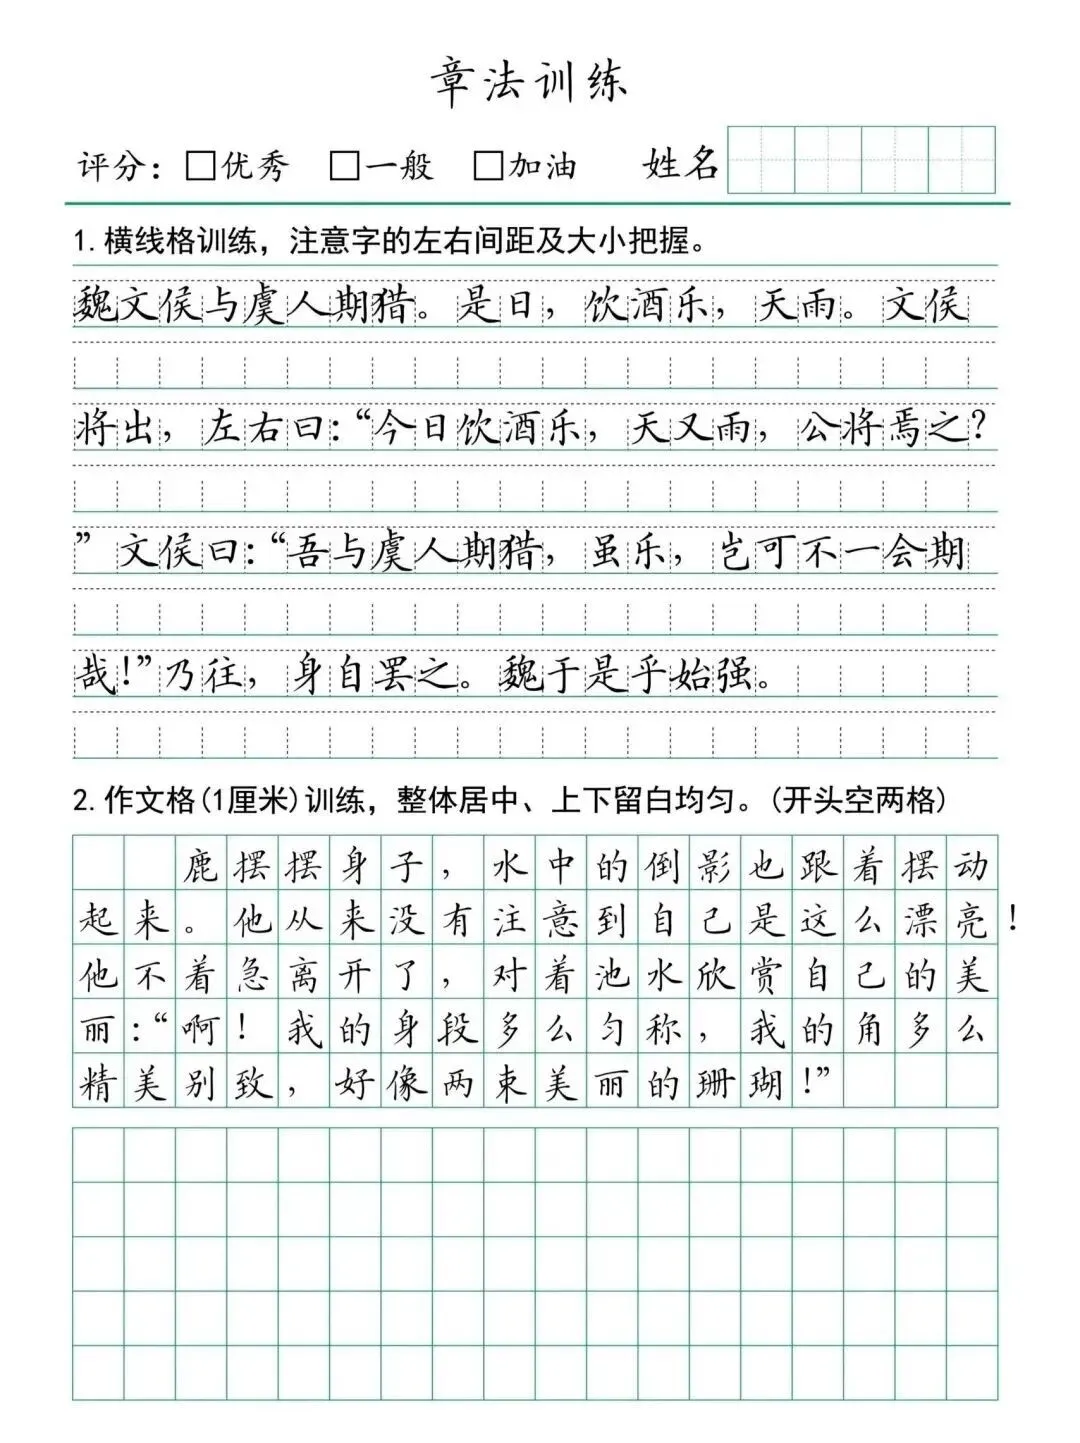 章法训练
评分：□优秀 □一般 □加油 姓名
1.横线格训练，注意字的左右间距及大小把握。
魏文侯与虞人期猎。是日，饮酒乐，天雨。文侯
将出，左右曰：“今日饮酒乐，天又雨，公将焉之？
”文侯曰：“吾与虞人期猎，虽乐，岂可不一会期
哉！”乃往，身自罢之。魏于是乎始强。
2.作文格(1厘米)训练，整体居中、上下留白均匀。(开头空两格)
鹿摆摆身子，水中的倒影也跟着摆动
起来。他从来没有注意到自己是这么漂亮！
他不着急离开了，对着池水欣赏自己的美
丽：“啊！我的身段多么匀称，我的角多么
精美别致，好像两束美丽的珊瑚！”